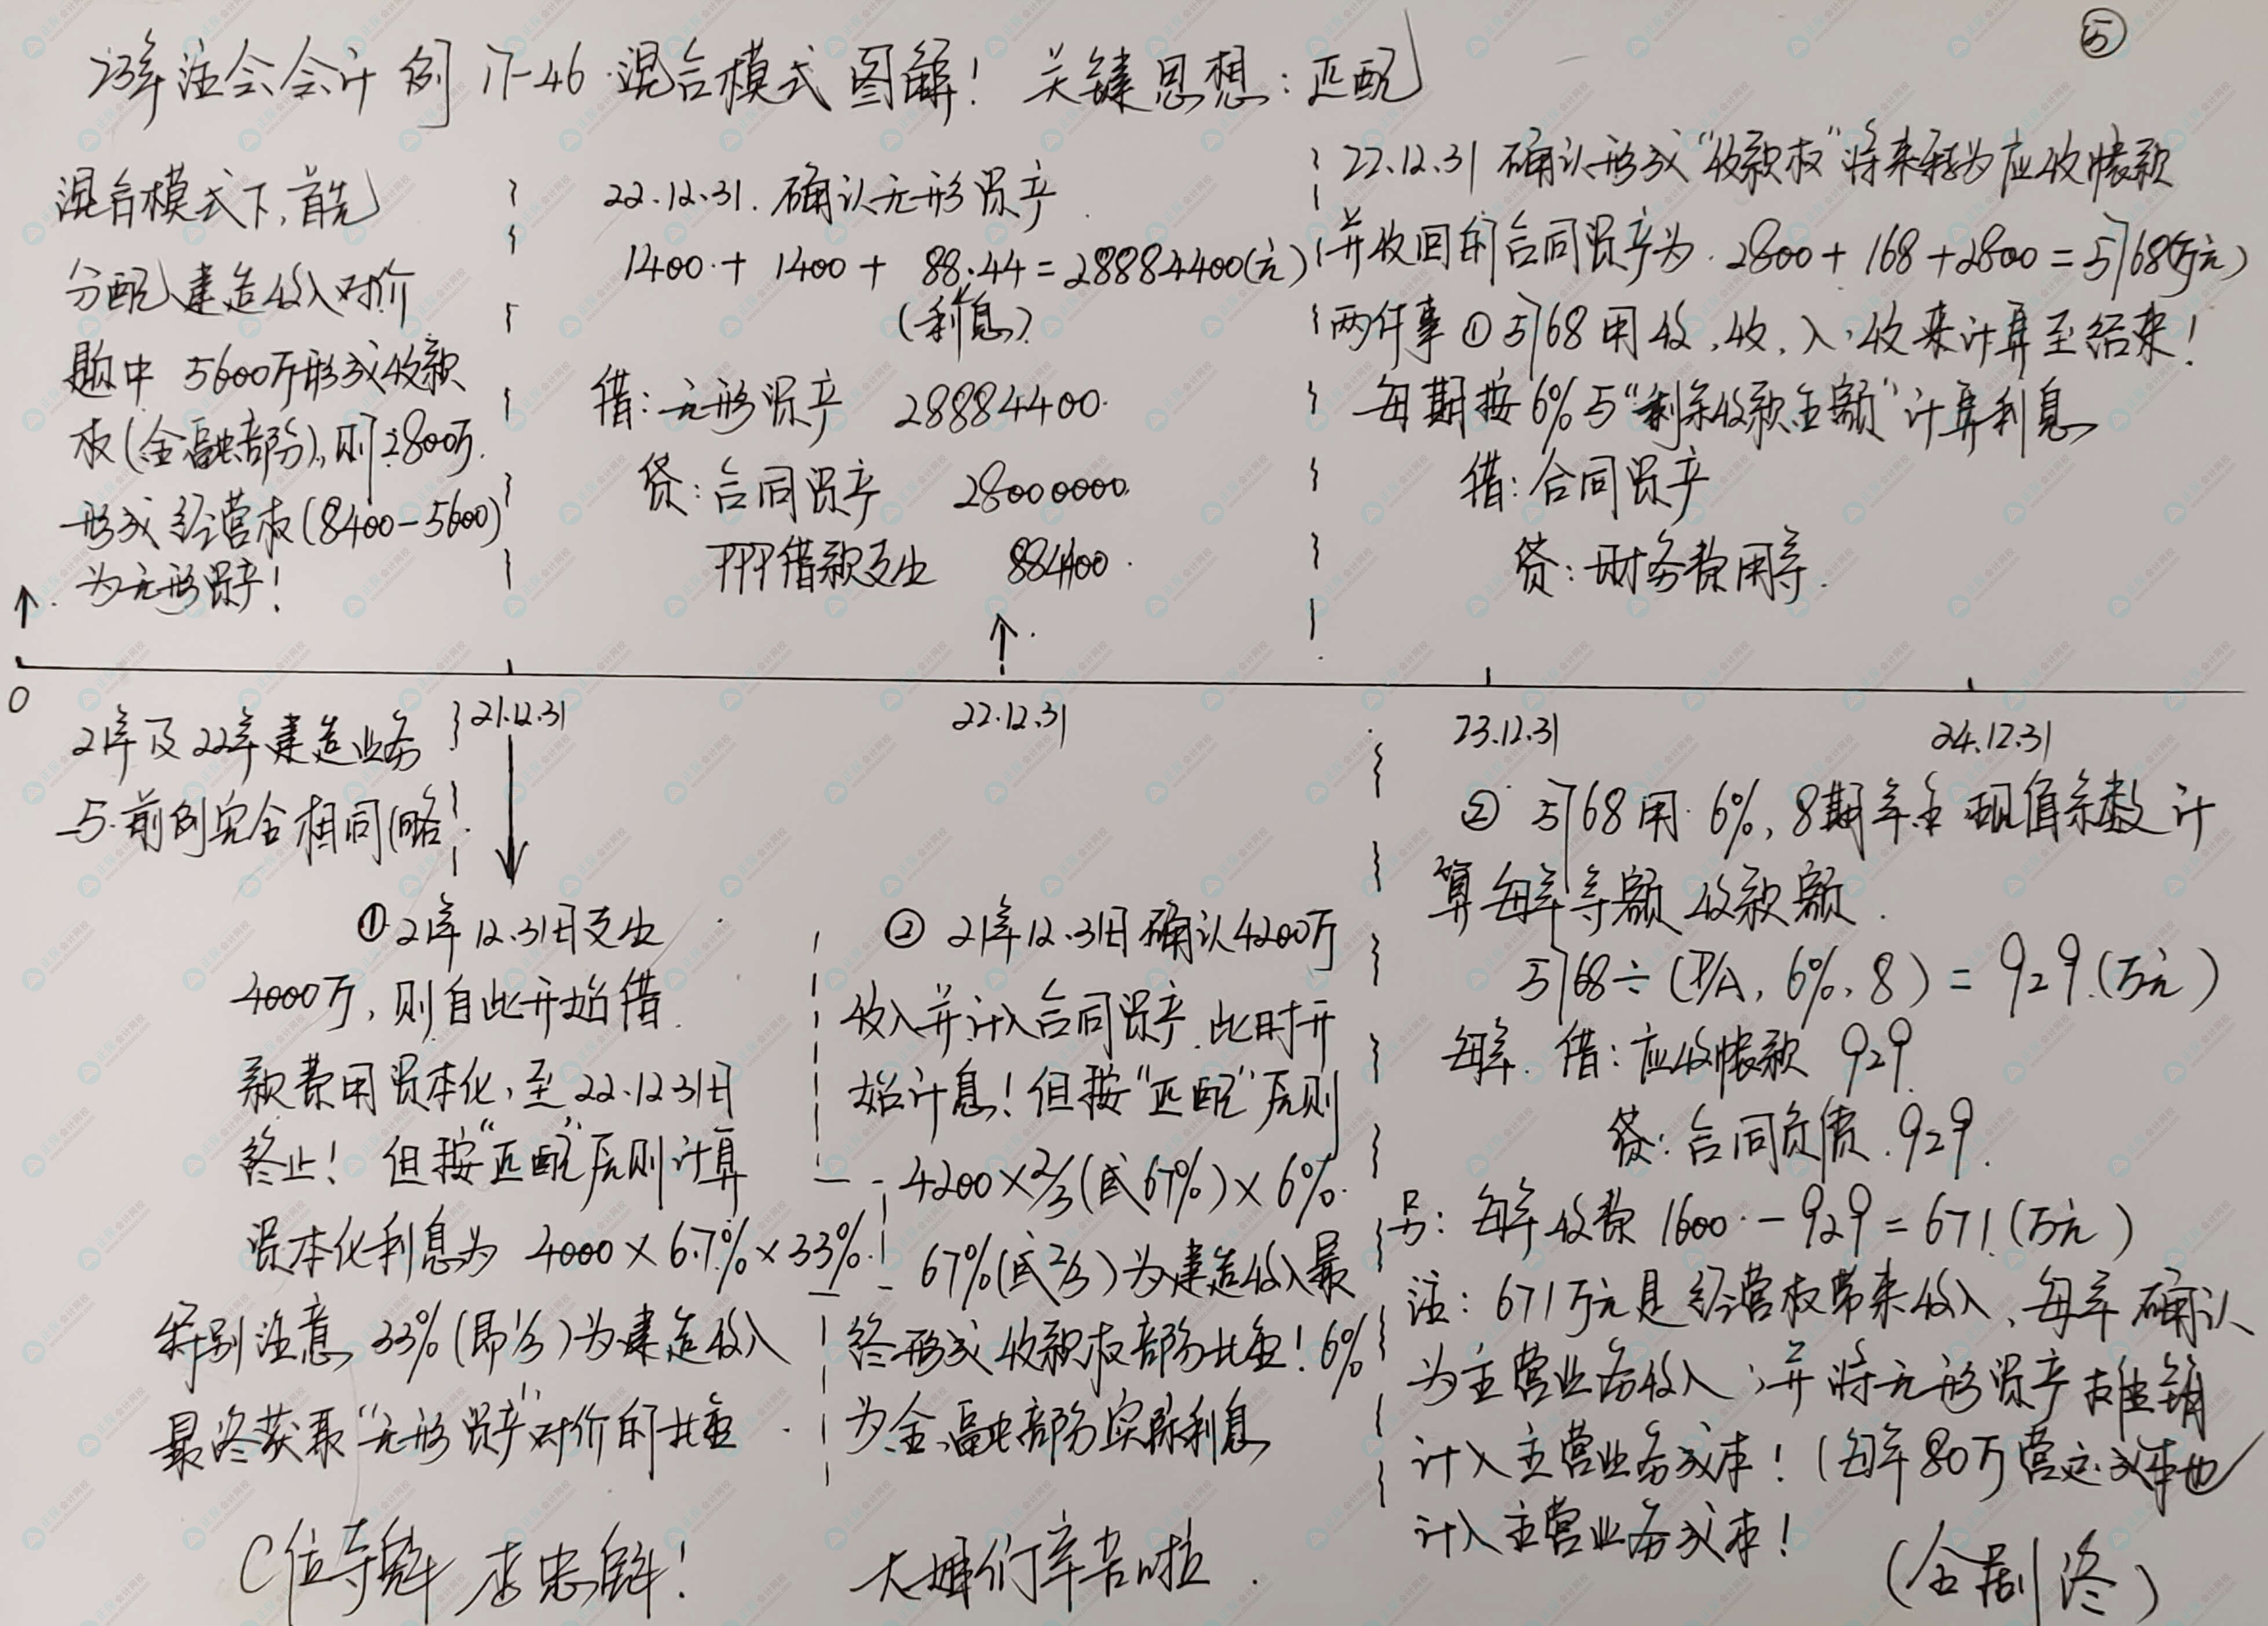 ⑤
23年注会会计 例17-46 混合模式图解! 关键思想:匹配
混合模式下,首先
分配建造收入对价
题中 5600万形成收款
权(金融部分),则2800万
形成经营权(8400-5600)
为无形资产!
22.12.31.确认无形资产
1400+1400+88.44=28884400(元)
(利息)
借:无形资产 28884400
贷:合同资产 28000000
PPP借款支出 884400
22.12.31确认形成“收款权”将来转为应收帐款
并收回的合同资产为 2800+168+2800=5768(万元)
两件事①5768用收、收、入、收来计算至结束!
每期按6%与“剩余收款金额”计算利息
借:合同资产
贷:财务费用等.
0
21.12.31
22.12.31
23.12.31
24.12.31
21年及22年建造业务
与前例完全相同(略
①21年12.31日支出
4000万,则自此开始借
款费用资本化,至22.12.31日
终止! 但按“匹配”原则计算
资本化利息为 4000×6.7%×33%
特别注意 33%(即1/3)为建造收入
最终获取“无形资产”对价的比重
② 21年12.31日确认4200万
收入并计入合同资产.此时开
始计息!但按“匹配”原则
4200×2/3(或67%)×6%
67%(或2/3)为建造收入最
终形成收款权部分比重!6%
为金融部分实际利息
② 5768用6%,8期年金现值系数计
算每年等额收款额.
5768÷(P/A,6%,8)=929.(万元)
每年.借:应收帐款 929.
贷:合同负债.929.
另:每年收费 1600-929=671.(万元)
注:671万元是经营权带来收入、每年确认
为主营业务收入;并将无形资产摊销
计入主营业务成本!(每年80万营运成本也
计入主营业务成本!
C位专舞 李忠魁!
大姐们辛苦啦.
(全剧终)